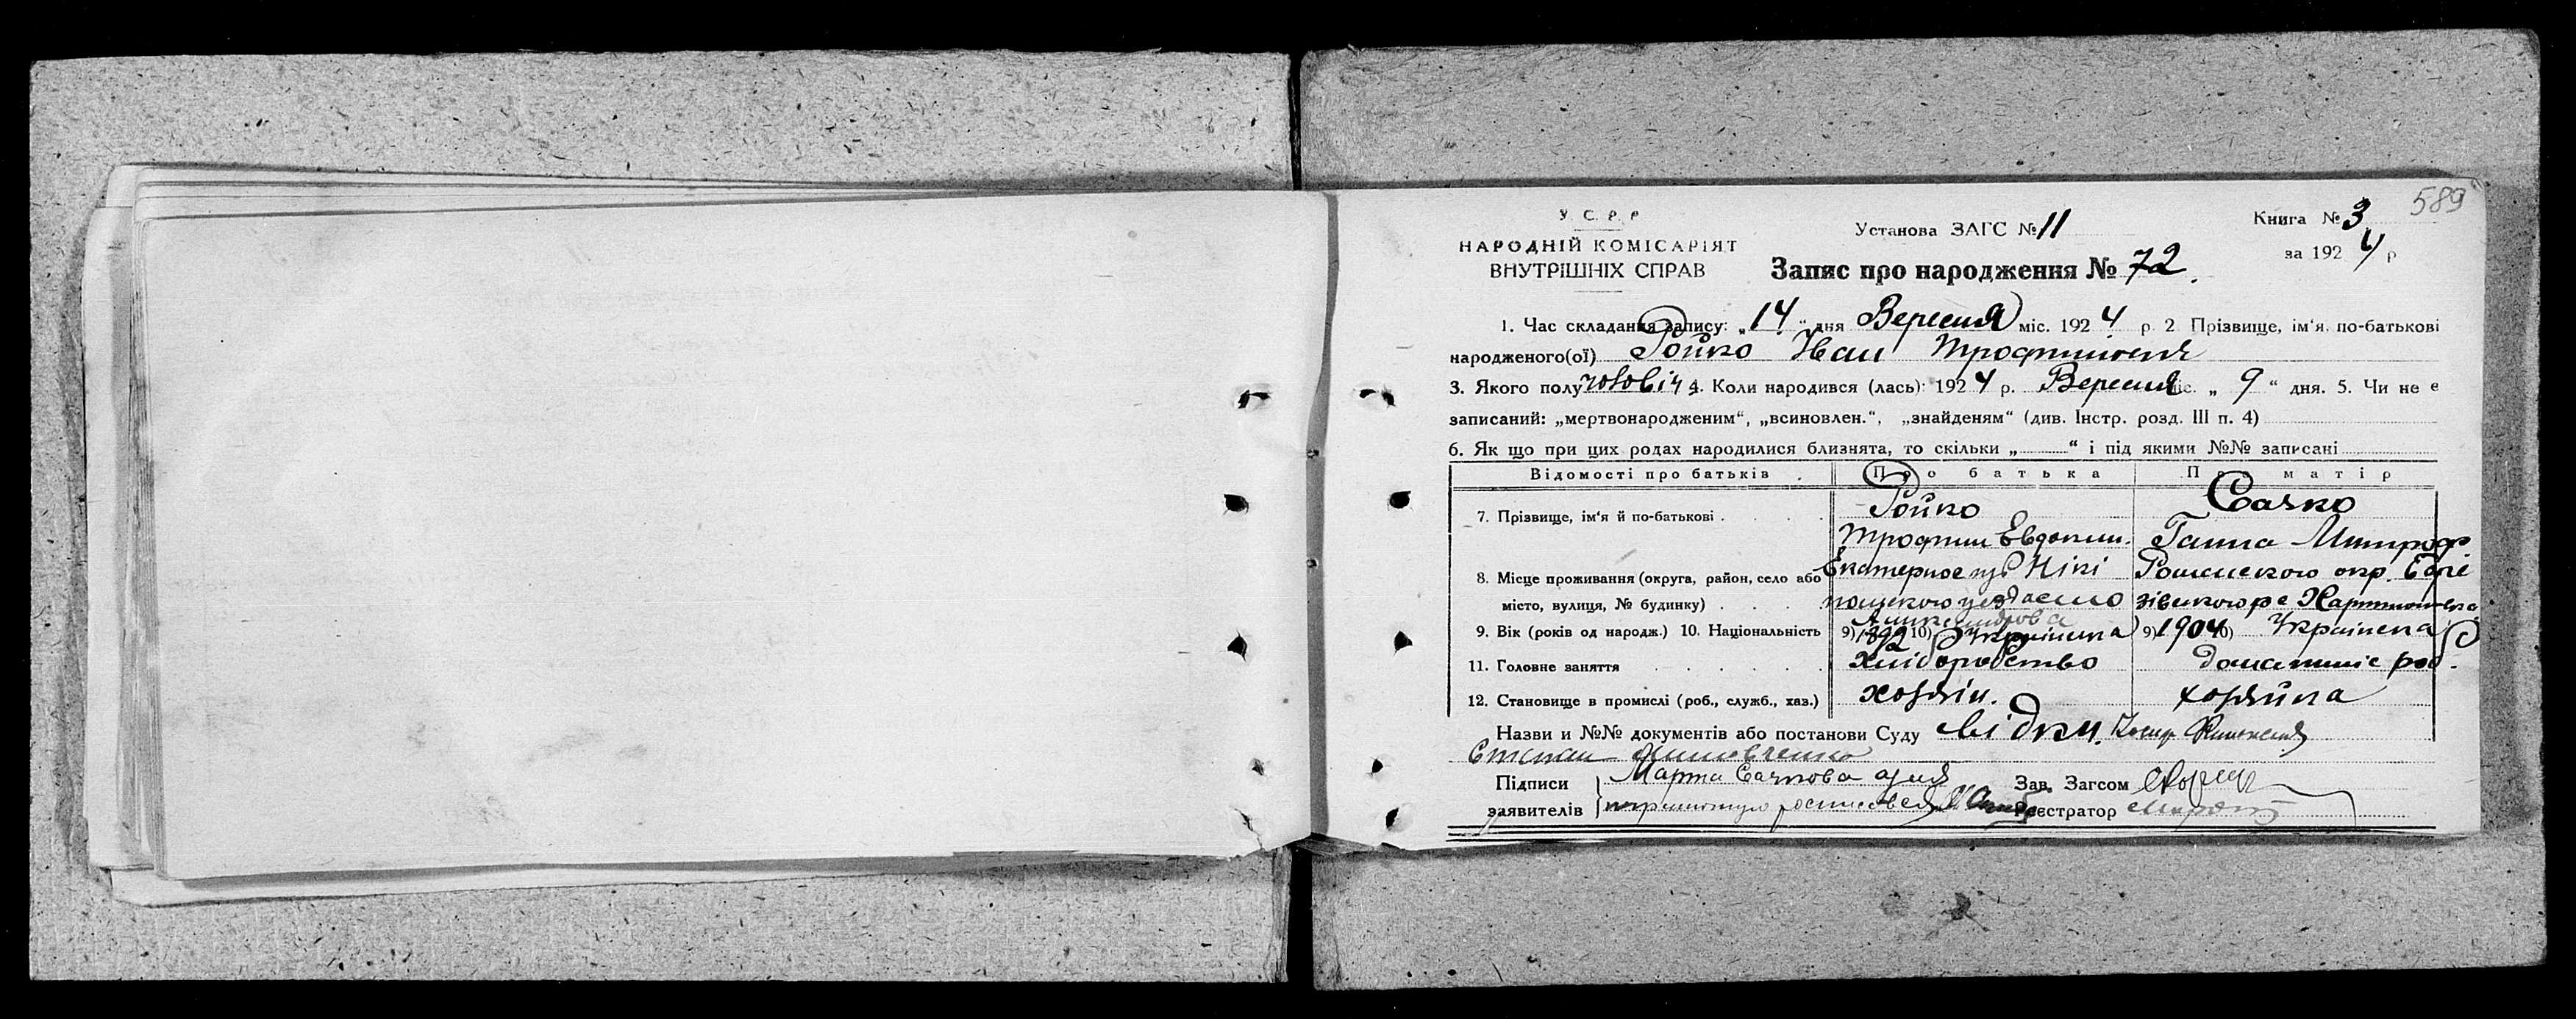 589
У. С. Р. Р
НАРОДНІЙ КОМІСАРІЯТ
ВНУТРІШНІХ СПРАВ
Установа ЗАГС № 11
Книга № 3
за 192 4 р
Запис про народження № 72.
1. Час складання запису: „ 14 “ дня Вересня міс. 192 4 р. 2 Прізвище, ім‘я, по-батькові
народженого(ої) Ройко Иван Трофимович
3. Якого полу чоловіч 4. Коли народився (лась): 192 4 р. Вересня міс. „ 9 “ дня. 5. Чи не є
записаний: „мертвонародженим“, „всиновлен.“, „знайденям“ (див. Інстр. розд. III п. 4)
6. Як що при цих родах народилися близнята, то скільки „ “ і під якими №№ записані
Відомості про батьків . Про батька Про матір
7. Прізвище, ім‘я й по-батькові . Ройко Сачко
Трофим Евдоким. Ганна Митроф
8. Місце проживання (округа, район, село або Екатеринос губ Нікі Роменского окр.
місто, вулиця, № будинку) . . . польского
9. Вік (років од народж.) 10. Національність 9) 1892 10) Українець 9) 1904 10) Українка
11. Головне заняття . . . . . Хліборобство домашніе роб.
12. Становище в промислі (роб., служб., хаз.) хозяін. хозяйка
Назви и №№ документів або постанови Суду
Степан
Підписи Марта Сачкова Зав. Загсом
заявителів Реєстратор